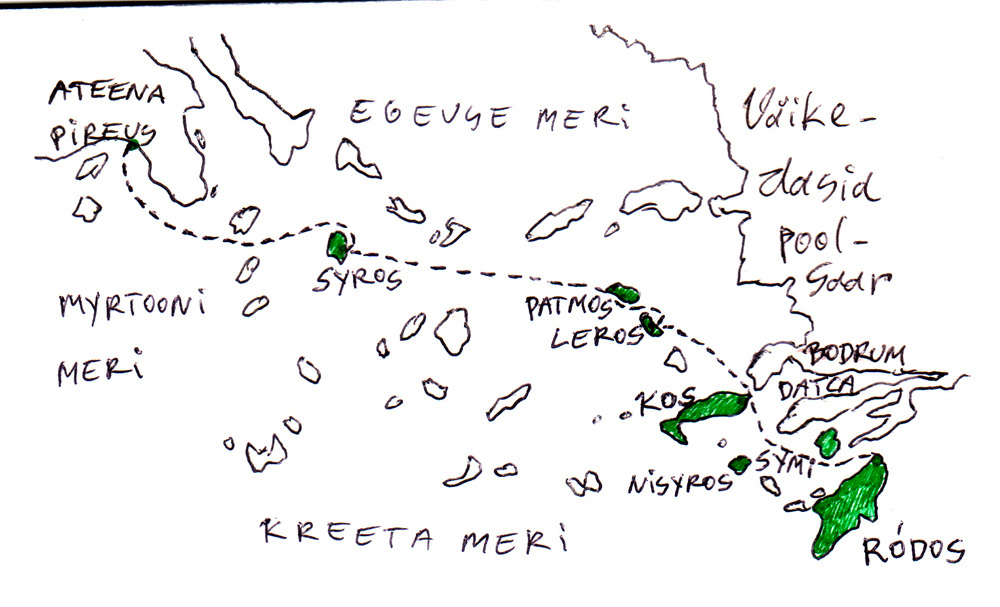 ATEENA
PIREUS
EGEUSE MERI
Väike-
Aasia
pool-
saar
SYROS
MYRTOONI
MERI
PATMOS
LEROS
BODRUM
DATCA
KOS
SYMI
NISYROS
KREETA MERI
RÓDOS